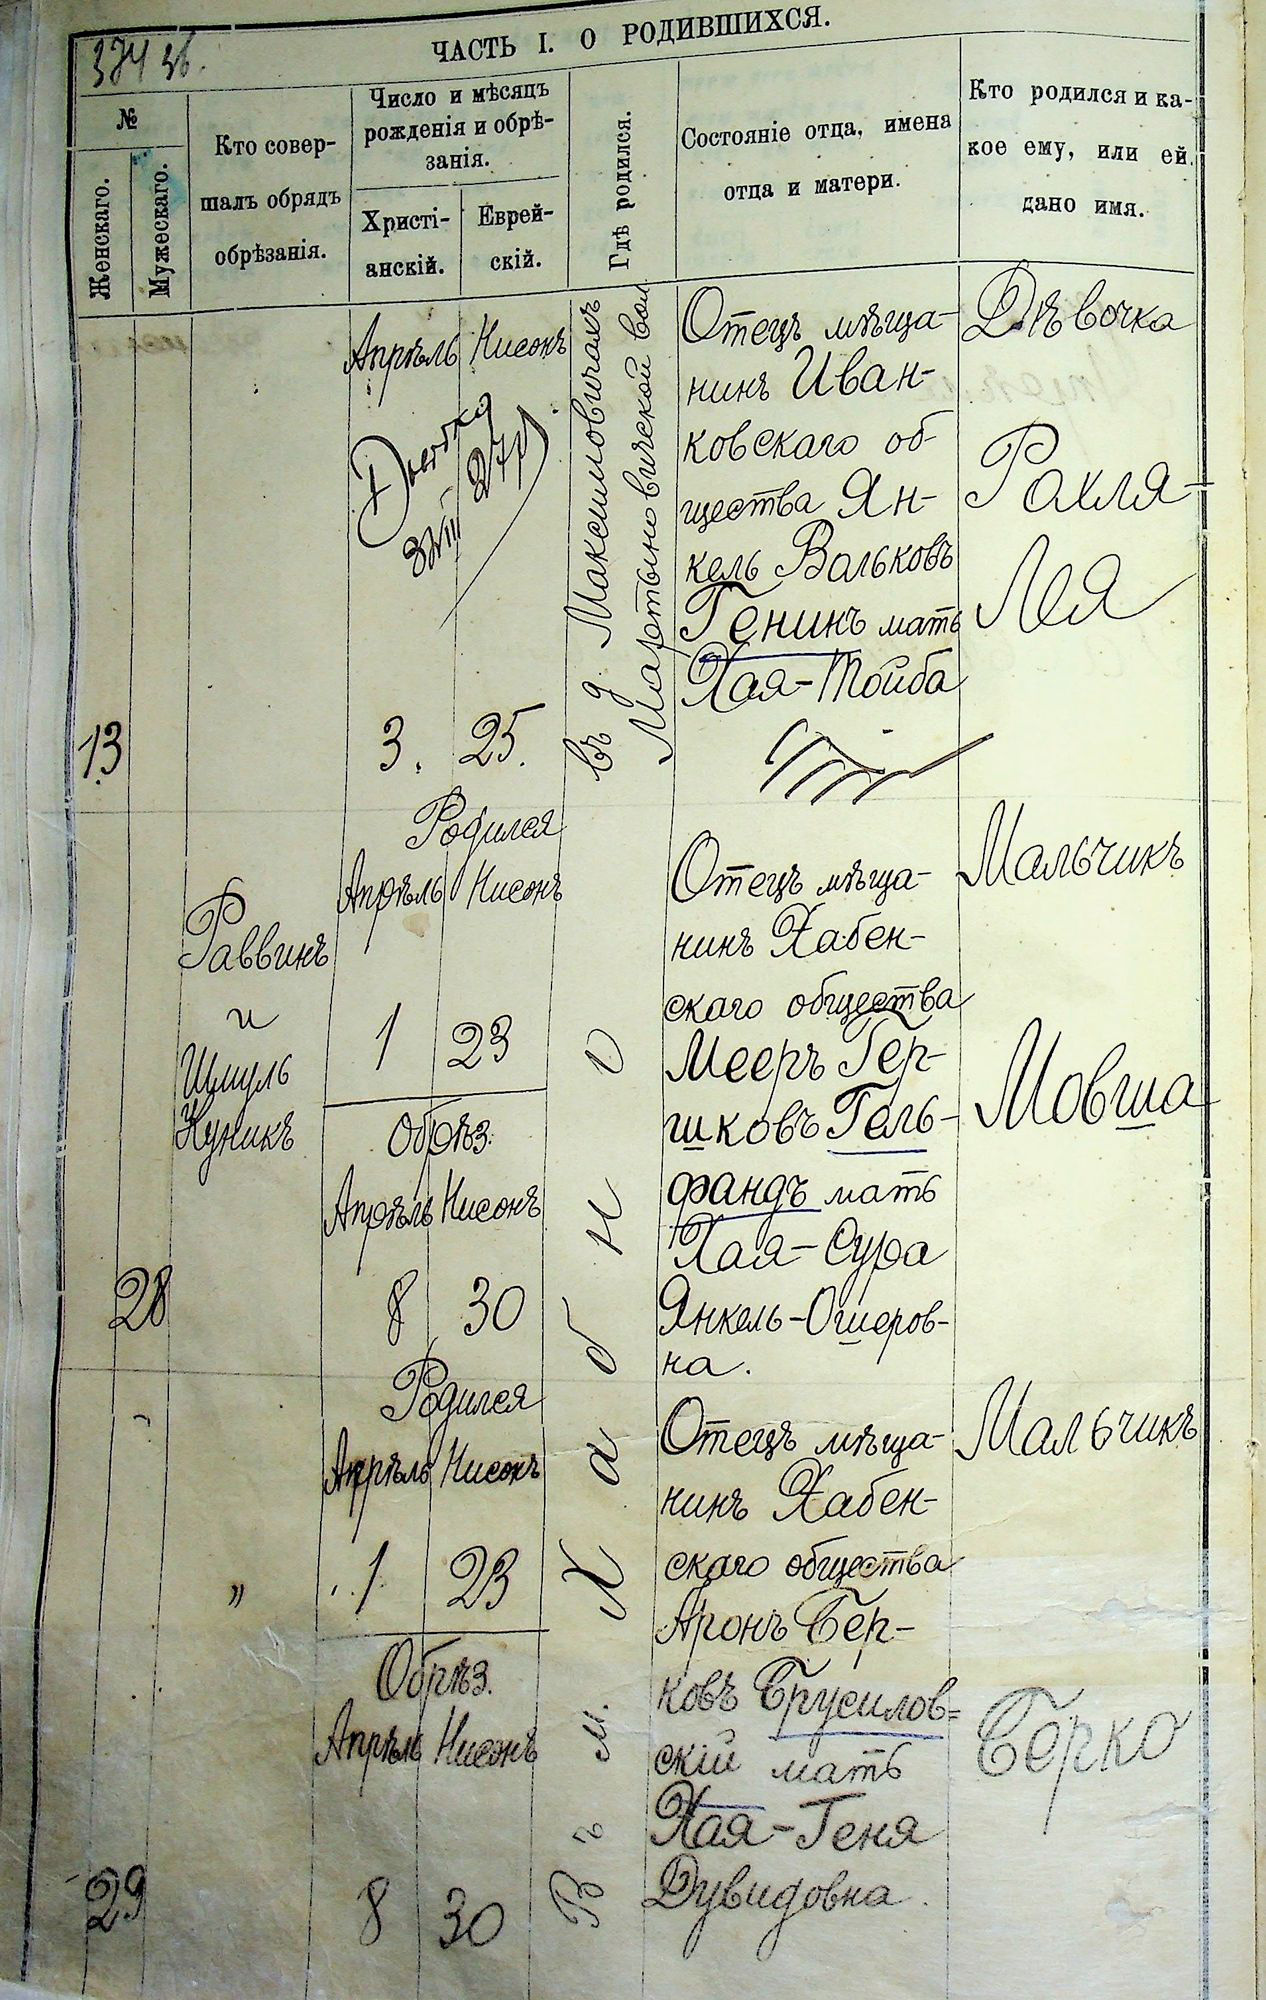 374 зв.
ЧАСТЬ I. О РОДИВШИХСЯ.
№
Женскаго.
Мужескаго.
Кто совер-
шалъ обрядъ
обрѣзанія.
Число и мѣсяцъ
рожденія и обрѣ-
занія.
Христі-
анскій.
Еврей-
скій.
Гдѣ родился.
Состояніе отца, имена
отца и матери.
Кто родился и ка-
кое ему, или ей
дано имя.
13
Апрѣль Нисонъ
3. 25.
въ д. Максимовичахъ
Мартыновической вол
Отецъ мѣща-
нинъ Иван-
ковскаго об-
щества Ян-
кель Вольковъ
Генинъ мать
Хая-Тойба
Дѣвочка
Рахля-
Лея
28
Раввинъ
и
Шмуль
Куникъ
Родился
Апрѣль Нисонъ
1 23
Обрѣз.
Апрѣль Нисонъ
8 30
Въ м. Хабно
Отецъ мѣща-
нинъ Хабен-
скаго общества
Мееръ Гер-
шковъ Гель-
фандъ мать
Хая-Сура
Янкель-Ошеров-
на.
Мальчикъ
Мовша
29
"
Родился
Апрѣль Нисонъ
1 23
Обрѣз.
Апрѣль Нисонъ
8 30
Отецъ мѣща-
нинъ Хабен-
скаго общества
Аронъ Бер-
ковъ Брусилов=
скій мать
Хая-Геня
Дувидовна.
Мальчикъ
Берко